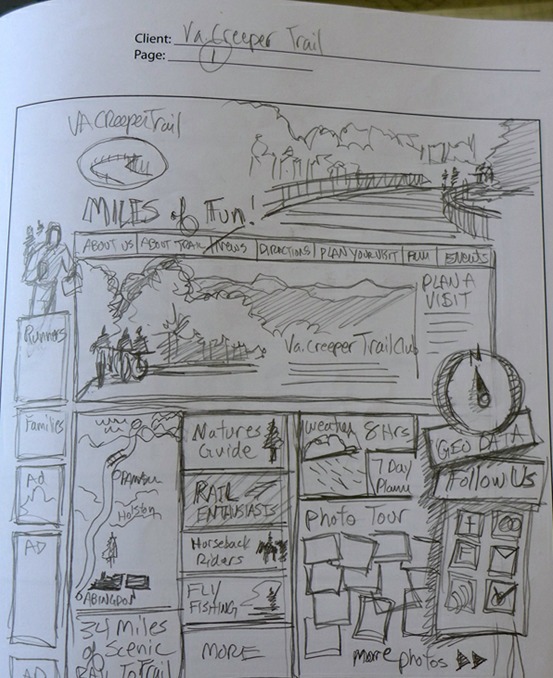 Client: Va. Creeper Trail
Page: 1
VA CREEPER TRAIL
MILES of Fun!
ABOUT US ABOUT TRAIL NEWS DIRECTIONS PLAN YOUR VISIT FUN EVENTS
PLAN A
VISIT
Va. Creeper Trail Club
Runners
Families
Ad
AD
AD
Holston
ABINGDON
34 Miles
of Scenic
RAIL To Trail
Natures
Guide
RAIL
ENTHUSIASTS
Horseback
Riders
FLY
FISHING
MORE
weather 8 Hrs
7 Day
Photo Tour
more photos
GEO DATA
Follow Us